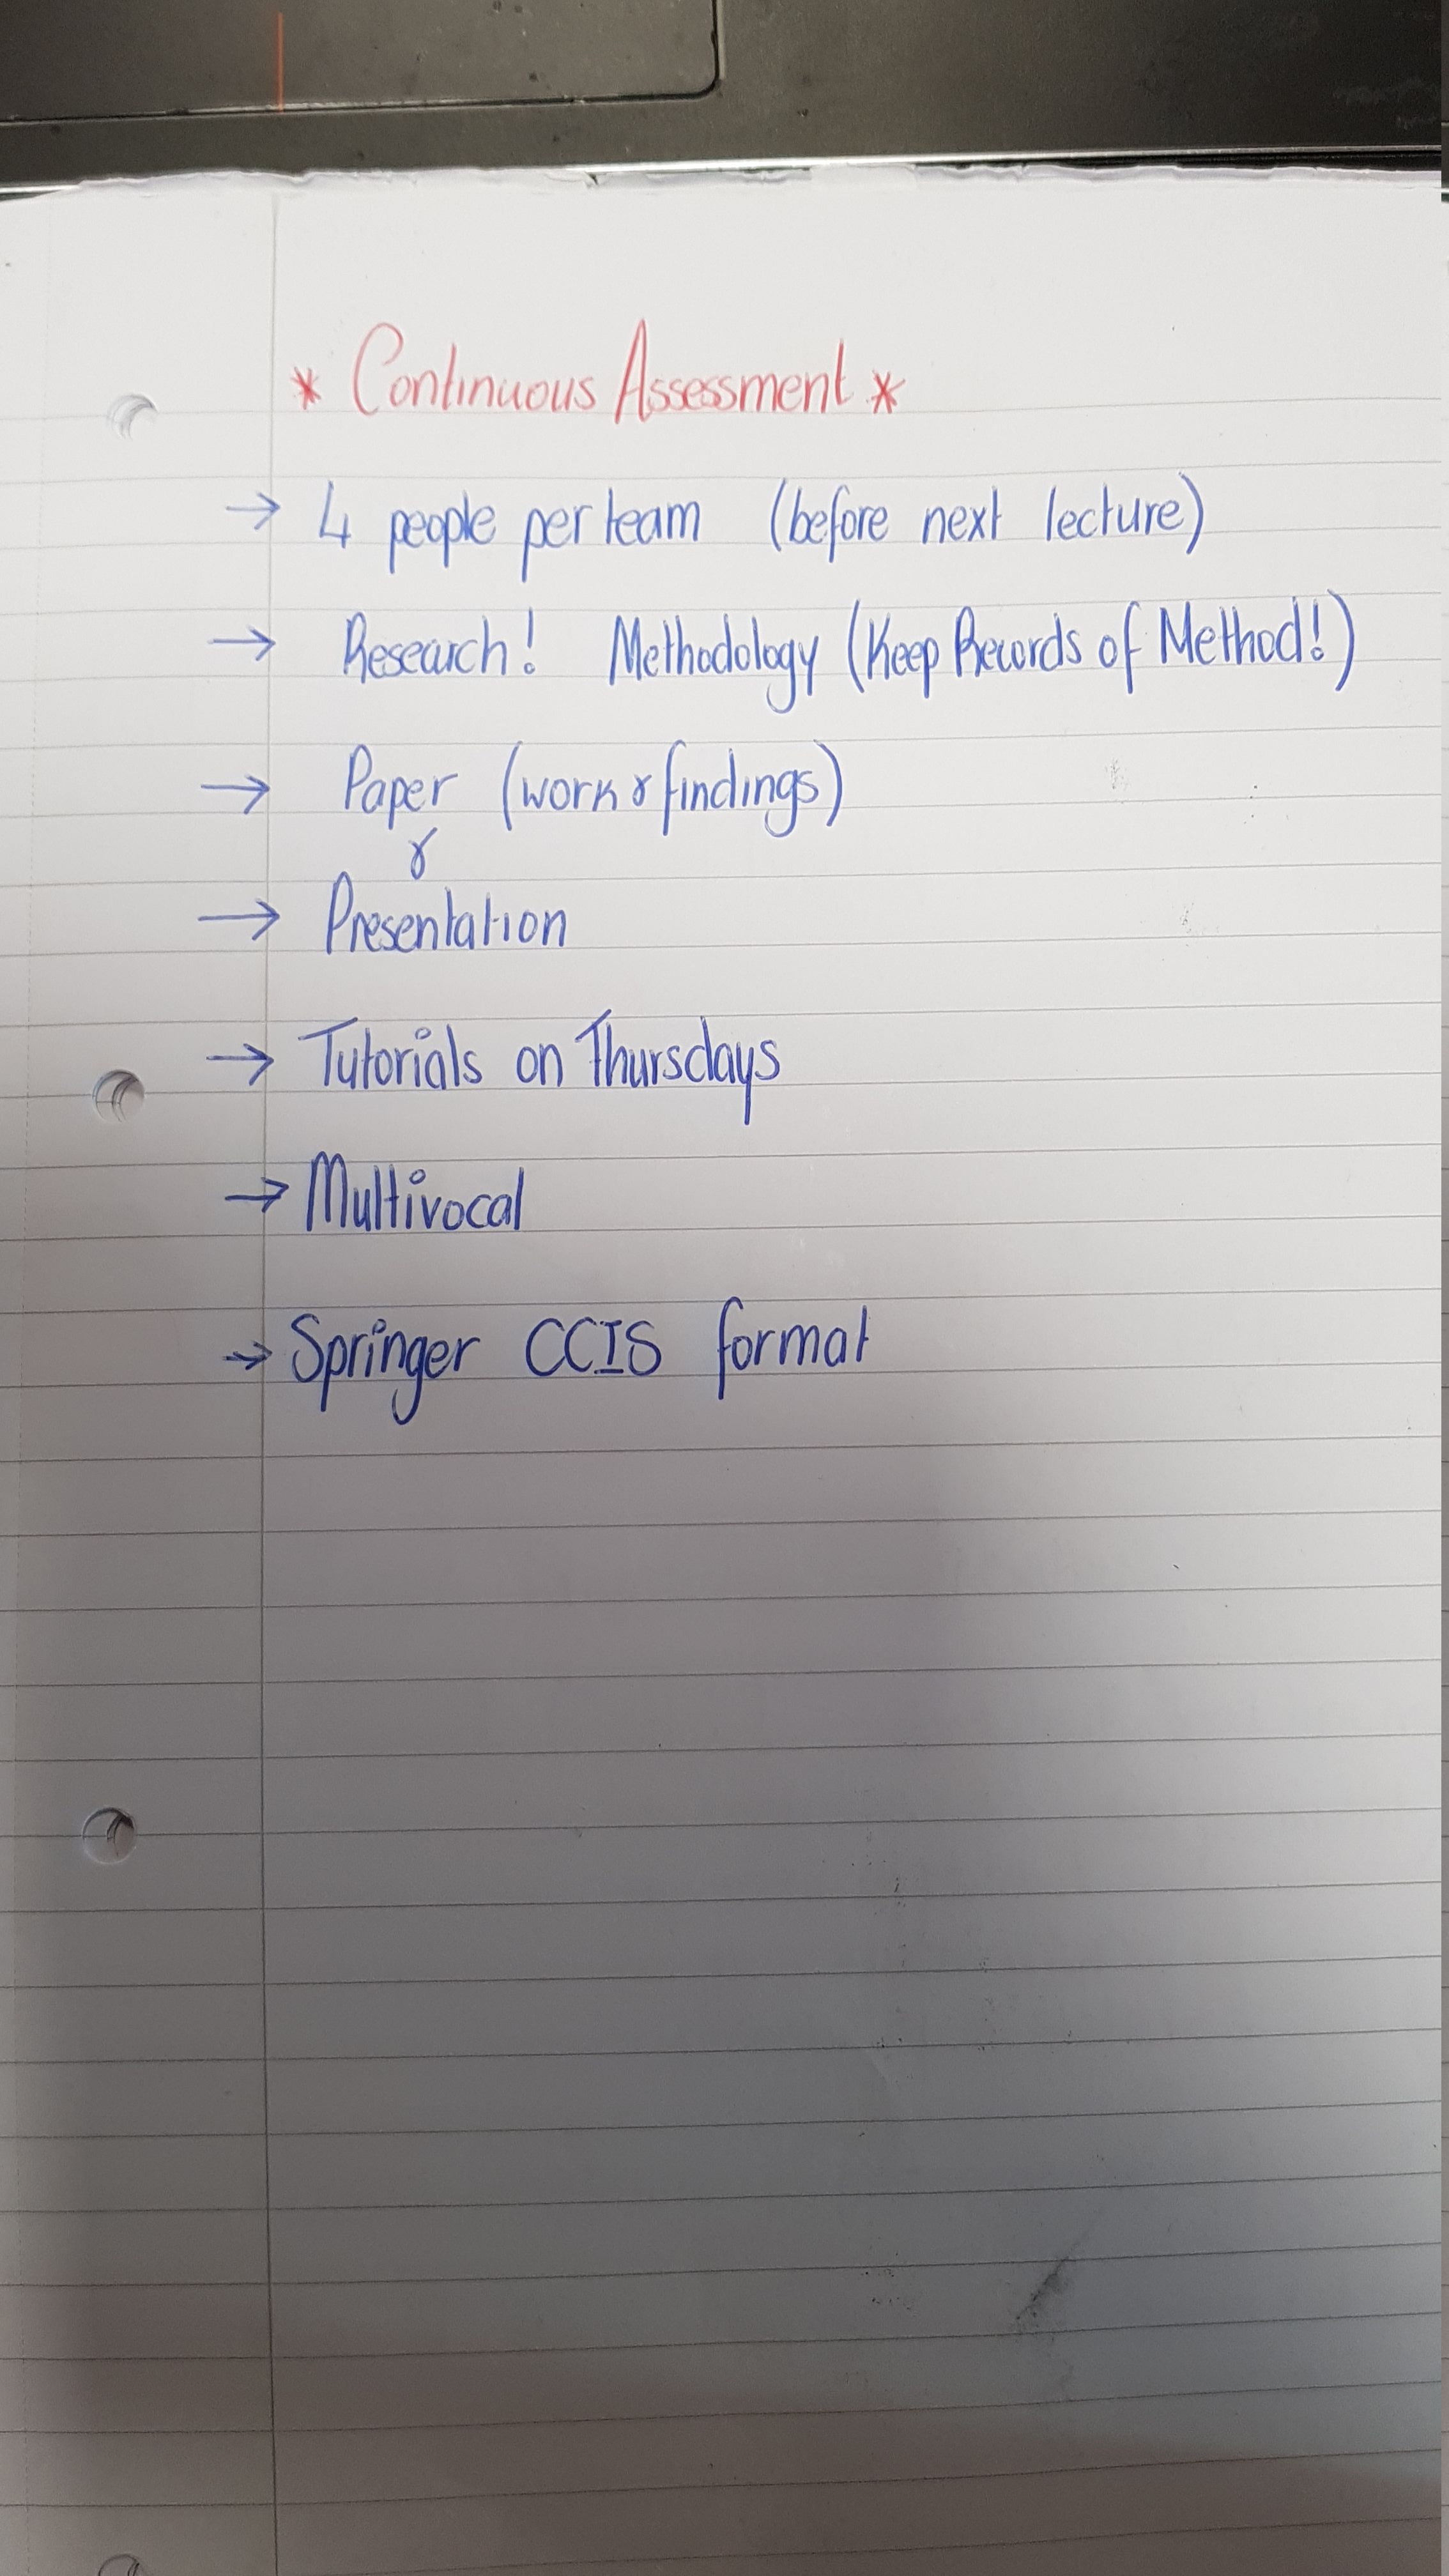 * Continuous Assessment *
→ 4 people per team (before next lecture)
→ Research! Methodology (Keep Records of Method!)
→ Paper (work & findings)
&
→ Presentation
→ Tutorials on Thursdays
→ Multivocal
→ Springer CCIS format